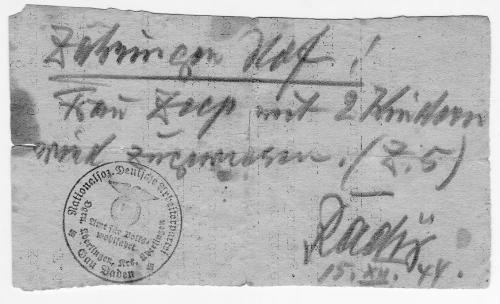 Zähringer Hof!
Frau Zopp mit 2 Kindern
wird zugewiesen. (Z. 5)
Nationalsoz. Deutsche Arbeiterpartei
Amt für Volks-
wohlfahrt
Überlingen
Gau Baden
15. XII. 44.